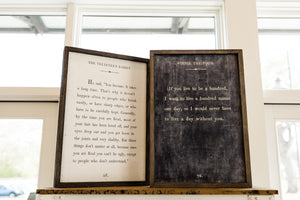 THE VELVETEEN RABBIT
He said, "You become. It takes
a long time. That's why it doesn't
happen often to people who break
easily, or have sharp edges, or who
have to be carefully kept. Generally,
by the time you are Real, most of
your hair has been loved off, and your
eyes drop out and you get loose in
the joints and very shabby. But these
things don't matter at all, because once
you are Real you can't be ugly, except
to people who don't understand."
WINNIE THE POOH
"If you live to be a hundred,
I want to live a hundred minus
one day, so I would never have
to live a day without you."